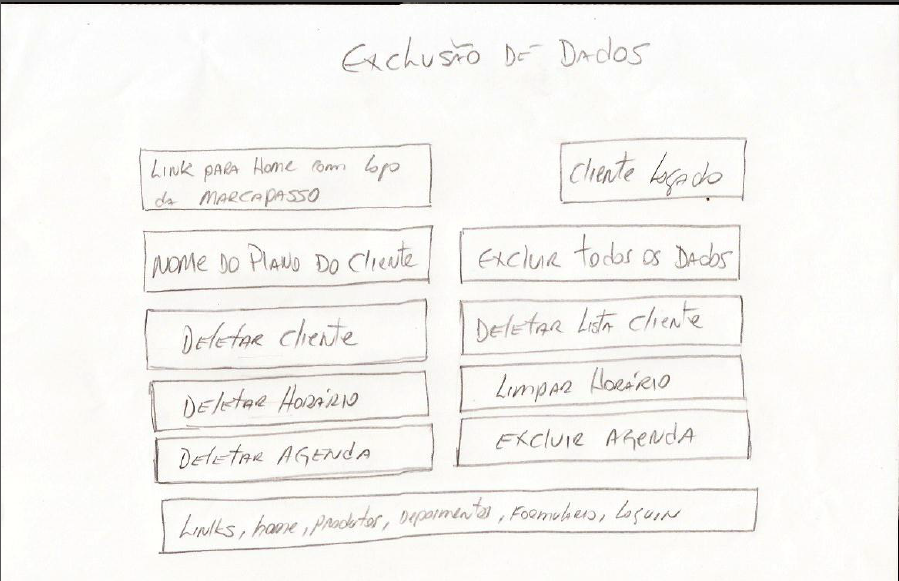 Exclusão de Dados
Link para Home com logo
da MARCAPASSO
Cliente Logado
Nome do Plano do Cliente
Excluir todos os Dados
Deletar Cliente
Deletar Lista Cliente
Deletar Horário
Limpar Horário
Deletar Agenda
Excluir Agenda
Links, home, produtos, Depoimentos, Formulário, Loguin